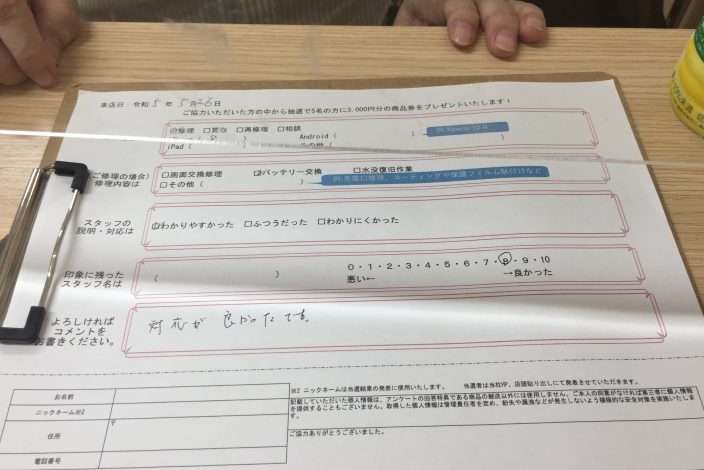 来店日：令和 5 年 5月26日
ご協力いただいた方の中から抽選で5名の方に3,000円分の商品券をプレゼントいたします！
☑修理 □買取 □再修理 □相談
Android ( )
例:Xperia
iPad ( ) その他 ( )
(ご修理の場合)
修理内容は
□画面交換修理 ☑バッテリー交換 □水没復旧作業
□その他 (
スタッフの
説明・対応は
☑わかりやすかった □ふつうだった □わかりにくかった
印象に残った
スタッフ名は
( )
0・1・2・3・4・5・6・7・8・9・10
悪い← →良かった
よろしければ
コメントを
お書きください。
対応が 良かったです。
お名前
ニックネーム※2
住所
〒
電話番号
※2 ニックネームは当選結果の発表に使用いたします。 当選者は当社HP、店頭貼り出しにて発表させていただきます。
記載していただいた個人情報は、アンケートの回答特典である商品の郵送以外には使用しません。ご本人の同意がなければ第三者に個人情報
を提供することもございません。取得した個人情報は管理責任者を定め、紛失や漏洩などが発生しないよう積極的な安全対策を実施いたしま
す。
ご協力ありがとうございました。